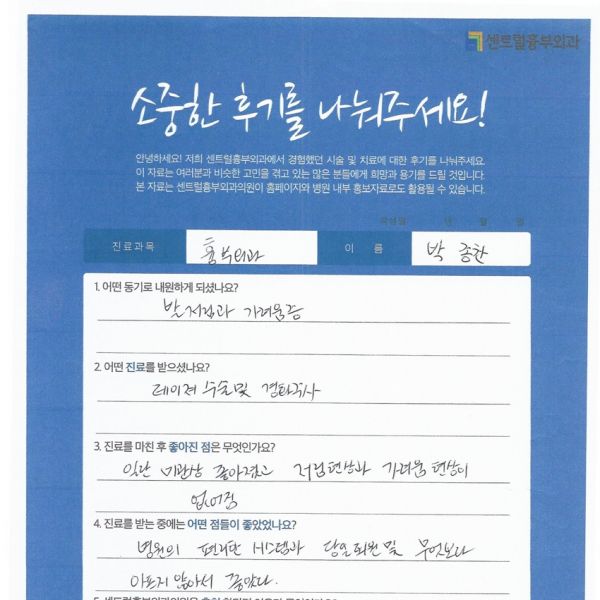 센트럴흉부외과
소중한 후기를 나눠주세요!
안녕하세요! 저희 센트럴흉부외과에서 경험했던 시술 및 치료에 대한 후기를 나눠주세요.
이 자료는 여러분과 비슷한 고민을 겪고 있는 많은 분들에게 희망과 용기를 드릴 것입니다.
본 자료는 센트럴흉부외과의원이 홈페이지와 병원 내부 홍보자료로도 활용될 수 있습니다.
작성일 년 월 일
진료과목 흉부외과 이 름 박종찬
1. 어떤 동기로 내원하게 되셨나요?
발 저림과 가려움증
2. 어떤 진료를 받으셨나요?
레이져 수술 및 경화주사
3. 진료를 마친 후 좋아진 점은 무엇인가요?
일단 미관상 좋아졌고 저림현상과 가려움 현상이
없어짐
4. 진료를 받는 중에는 어떤 점들이 좋았었나요?
병원의 편리한 시스템과 당일퇴원 및 무엇보다
아프지 않아서 좋았다.